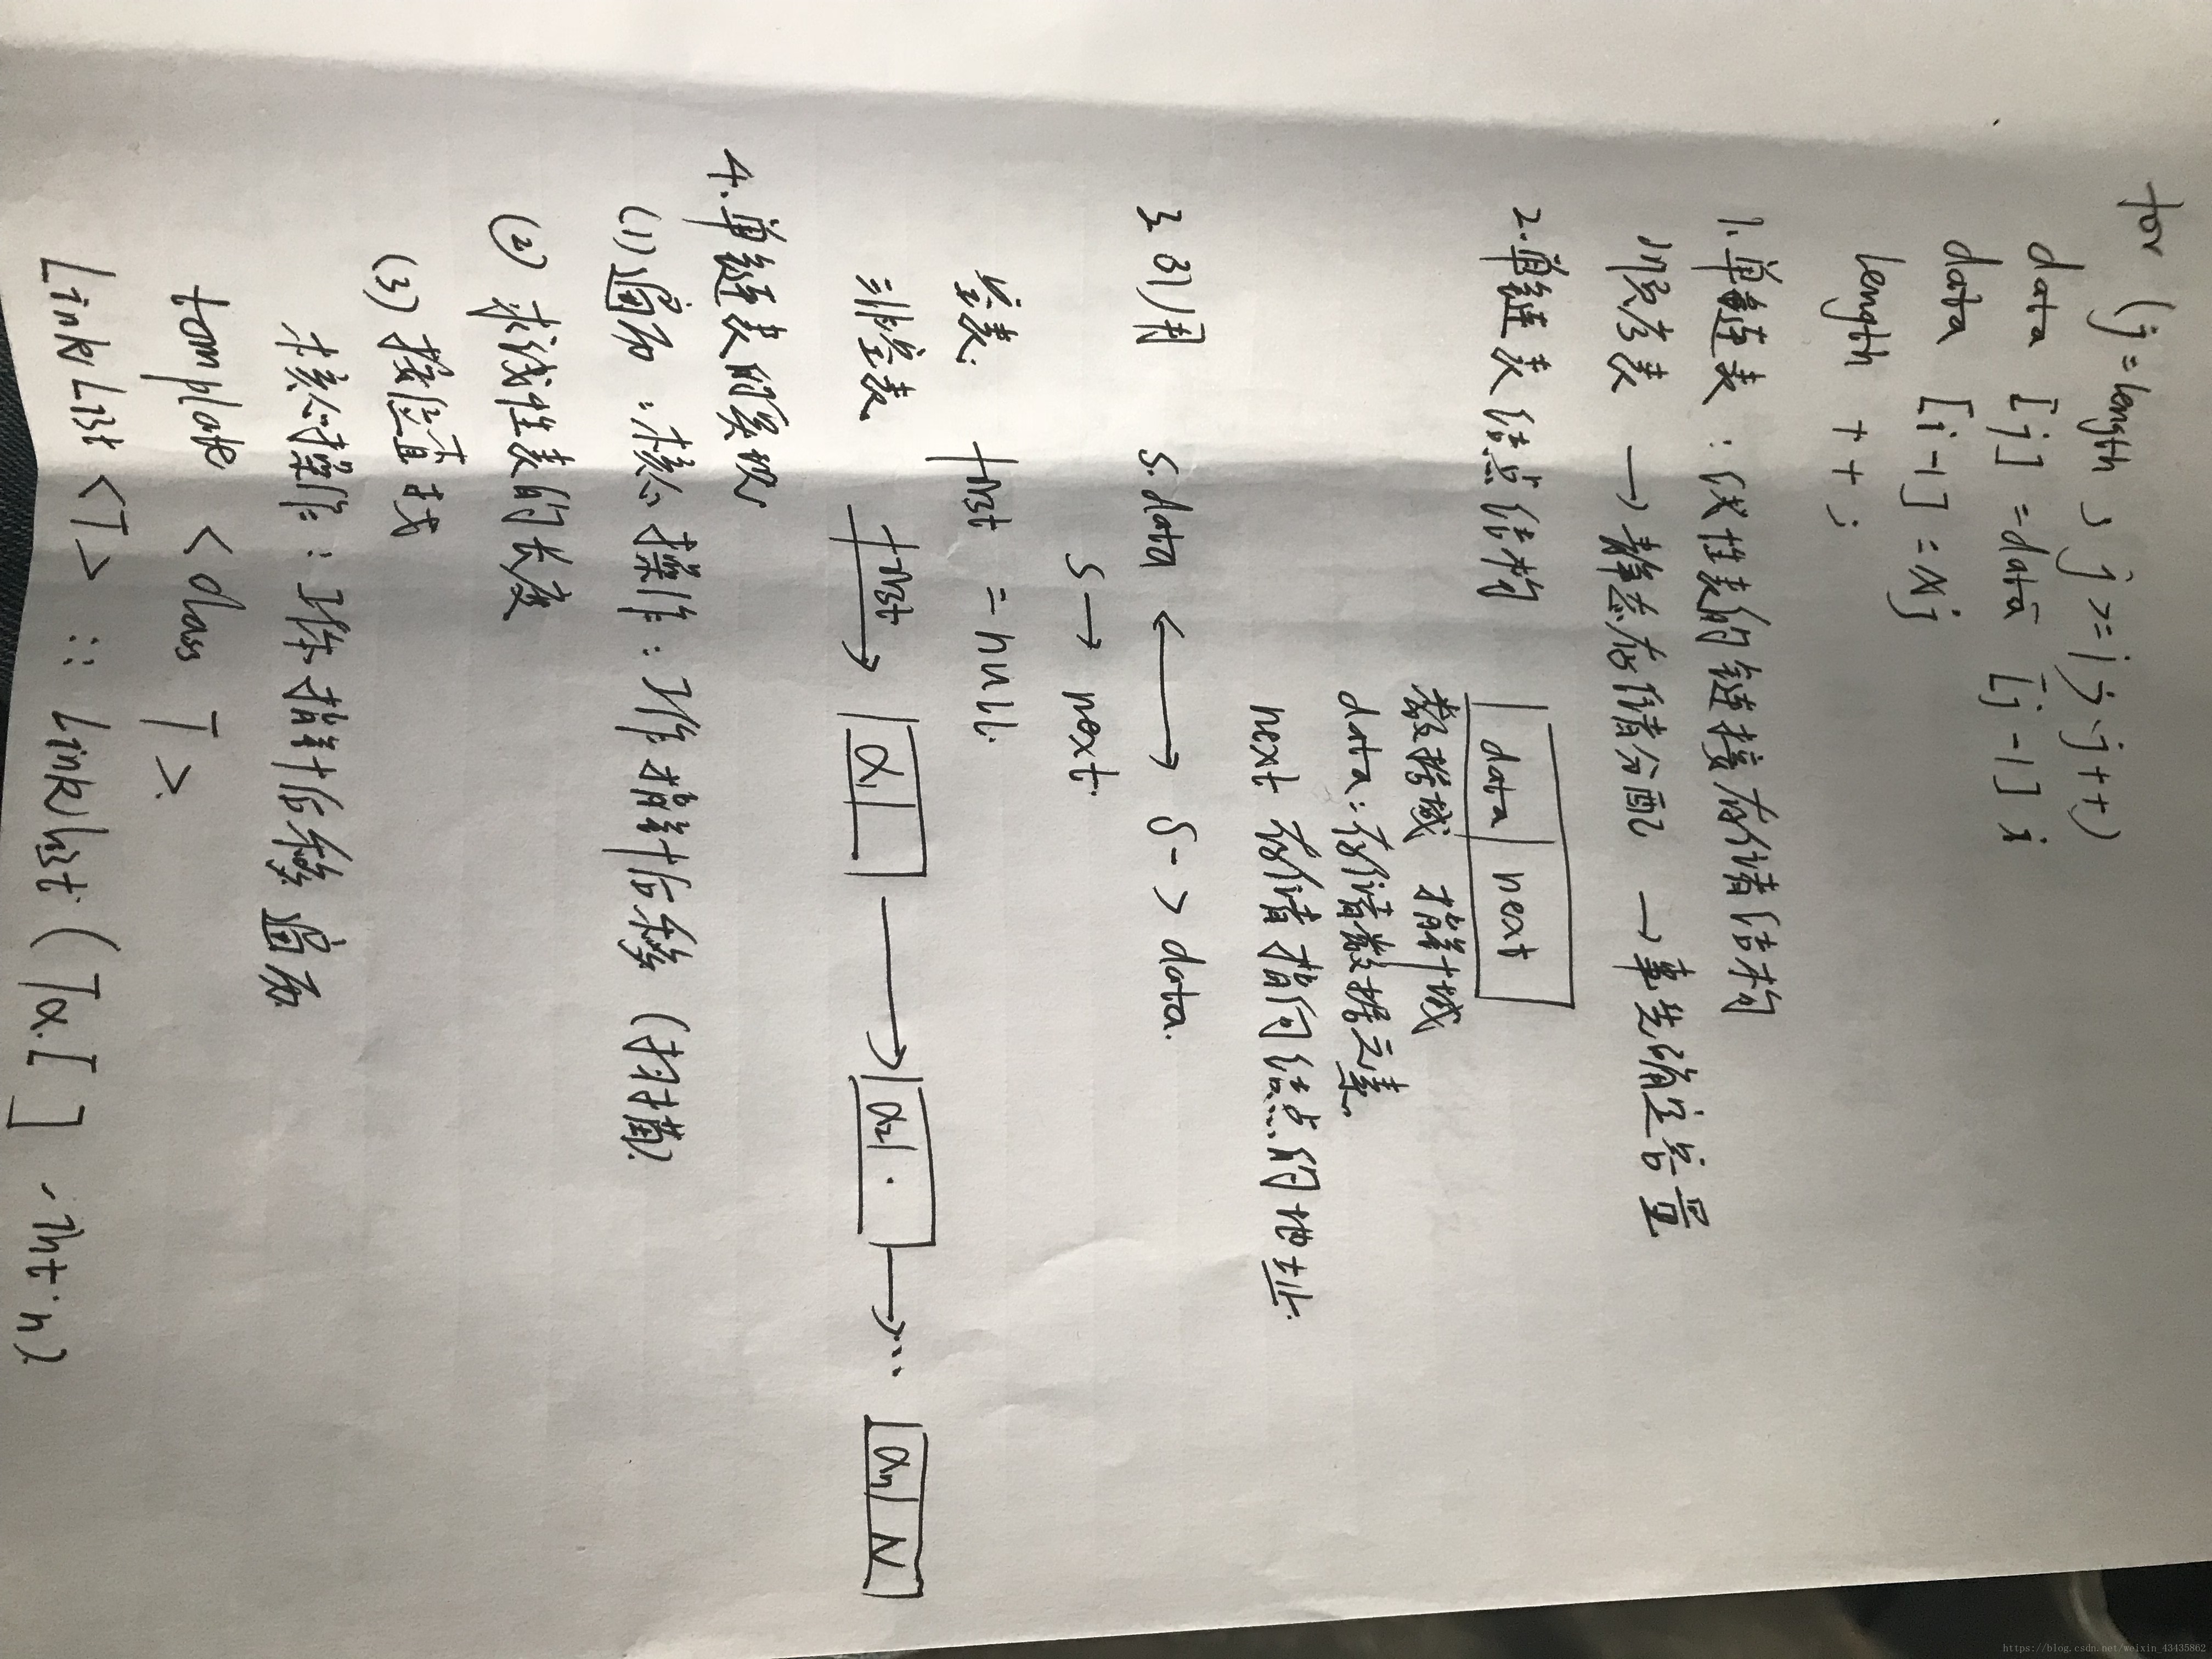 for (j=length ; j>=i ; j++)
data [j] =data [j-1] ;
data [i-1] = x;
length ++ ;
1.单链表：线性表的链接存储结构
顺序表 → 静态存储分配 → 事先确定容量
2.单链表结点结构
data next
数据域 指针域
data：存储数据元素
next 存储指向结点的地址.
3. 引用
s.data ⟷ s->data.
s → next.
空表： first = null.
非空表 first → a1 → a2 → ... an N
4.单链表的实现
(1)遍历：核心操作：工作指针后移 (扫描)
(2) 求线性表的长度
(3) 按位查找
核心操作：工作指针后移 遍历
template <class T>
LinkList <T> :: LinkList (T a[ ] , int n)
https://blog.csdn.net/weixin_43435862